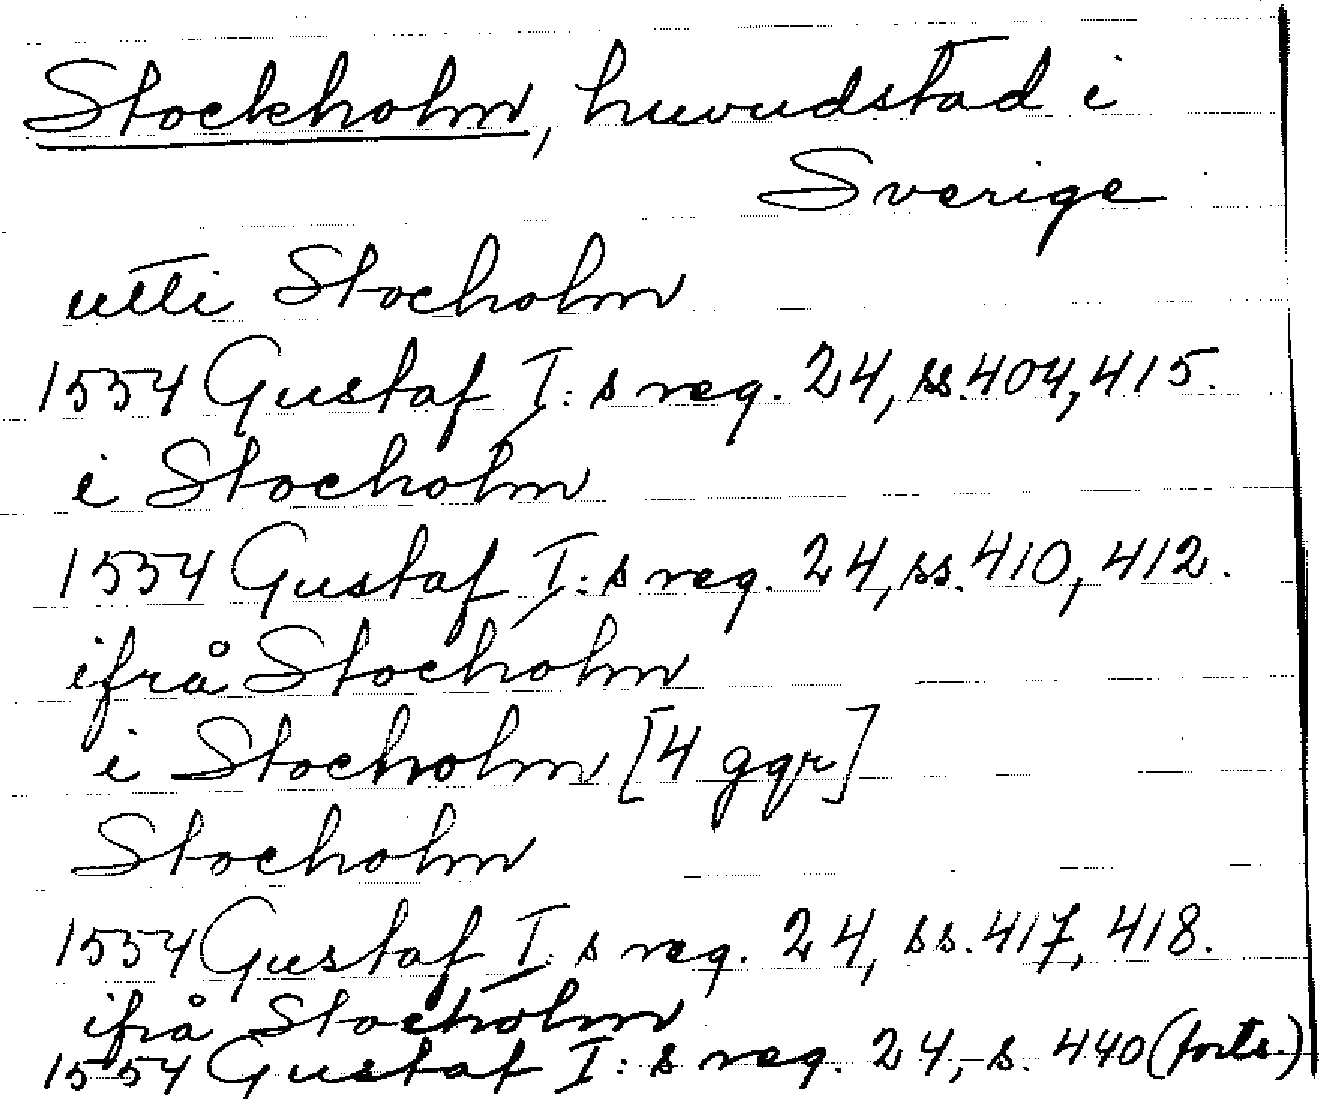 Stockholm, huvudstad i
Sverige
utti Stocholm
1554 Gustaf I:s reg. 24, ss. 404, 415.
i Stocholm
1554 Gustaf I:s reg. 24, ss. 410, 412.
ifrå Stocholm
i Stocholm [4 ggr]
Stocholm
1554 Gustaf I:s reg. 24, ss. 417, 418.
ifrå Stocholm
1554 Gustaf I:s reg. 24, s. 440 (forts.)